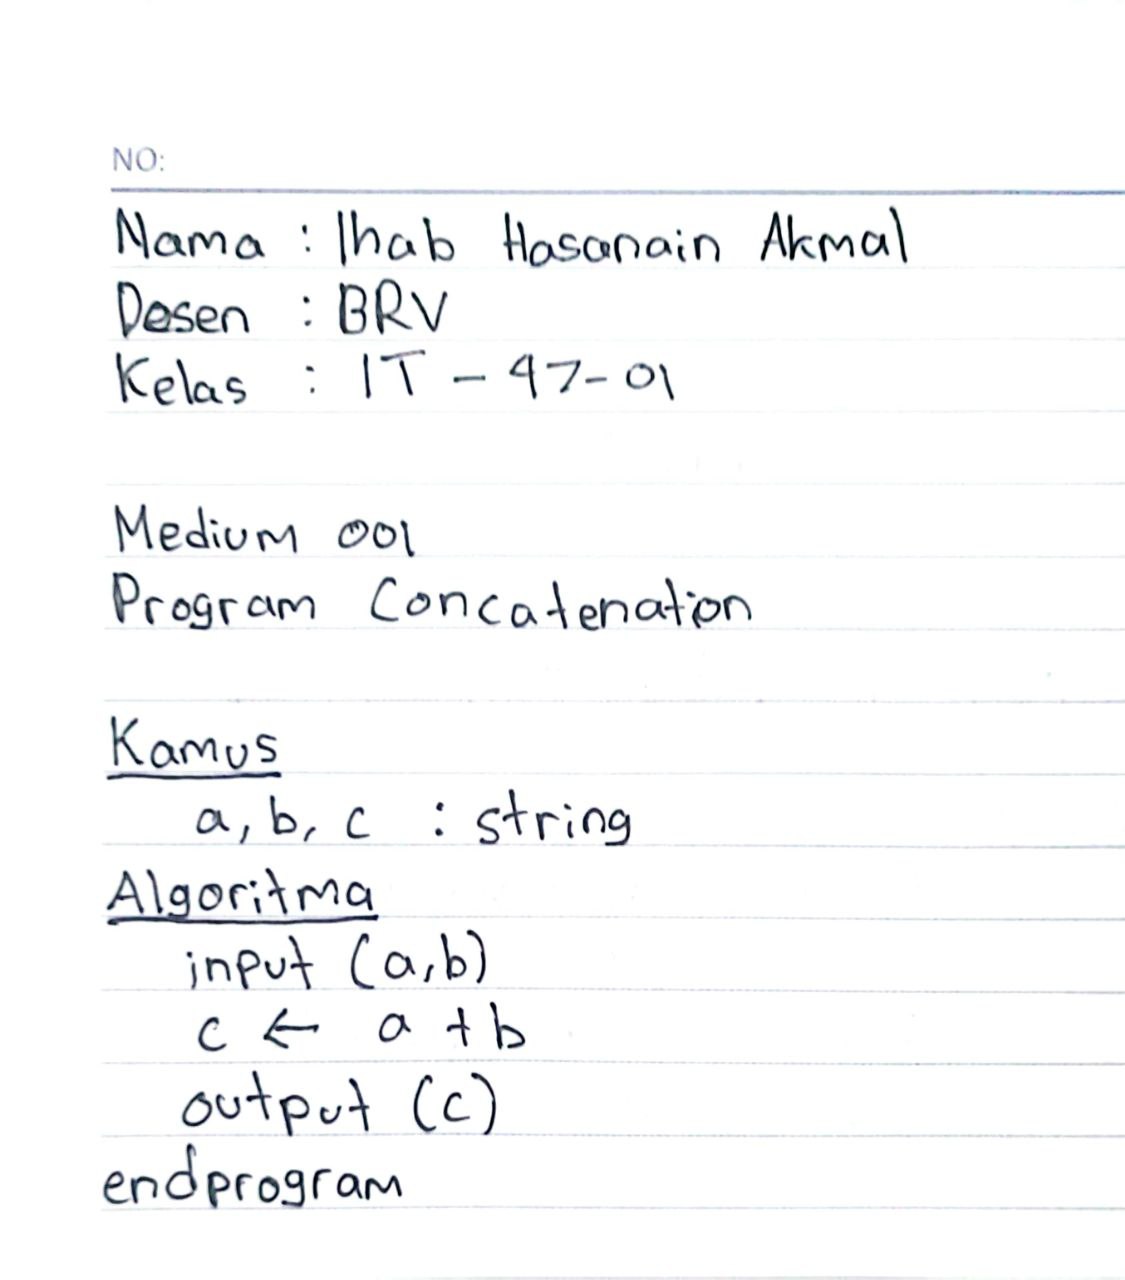 NO:
Nama : Ihab Hasanain Akmal
Dosen : BRV
Kelas : IT - 47-01
Medium 001
Program Concatenation
Kamus
a, b, c : string
Algoritma
input (a,b)
c ← a + b
output (c)
endprogram